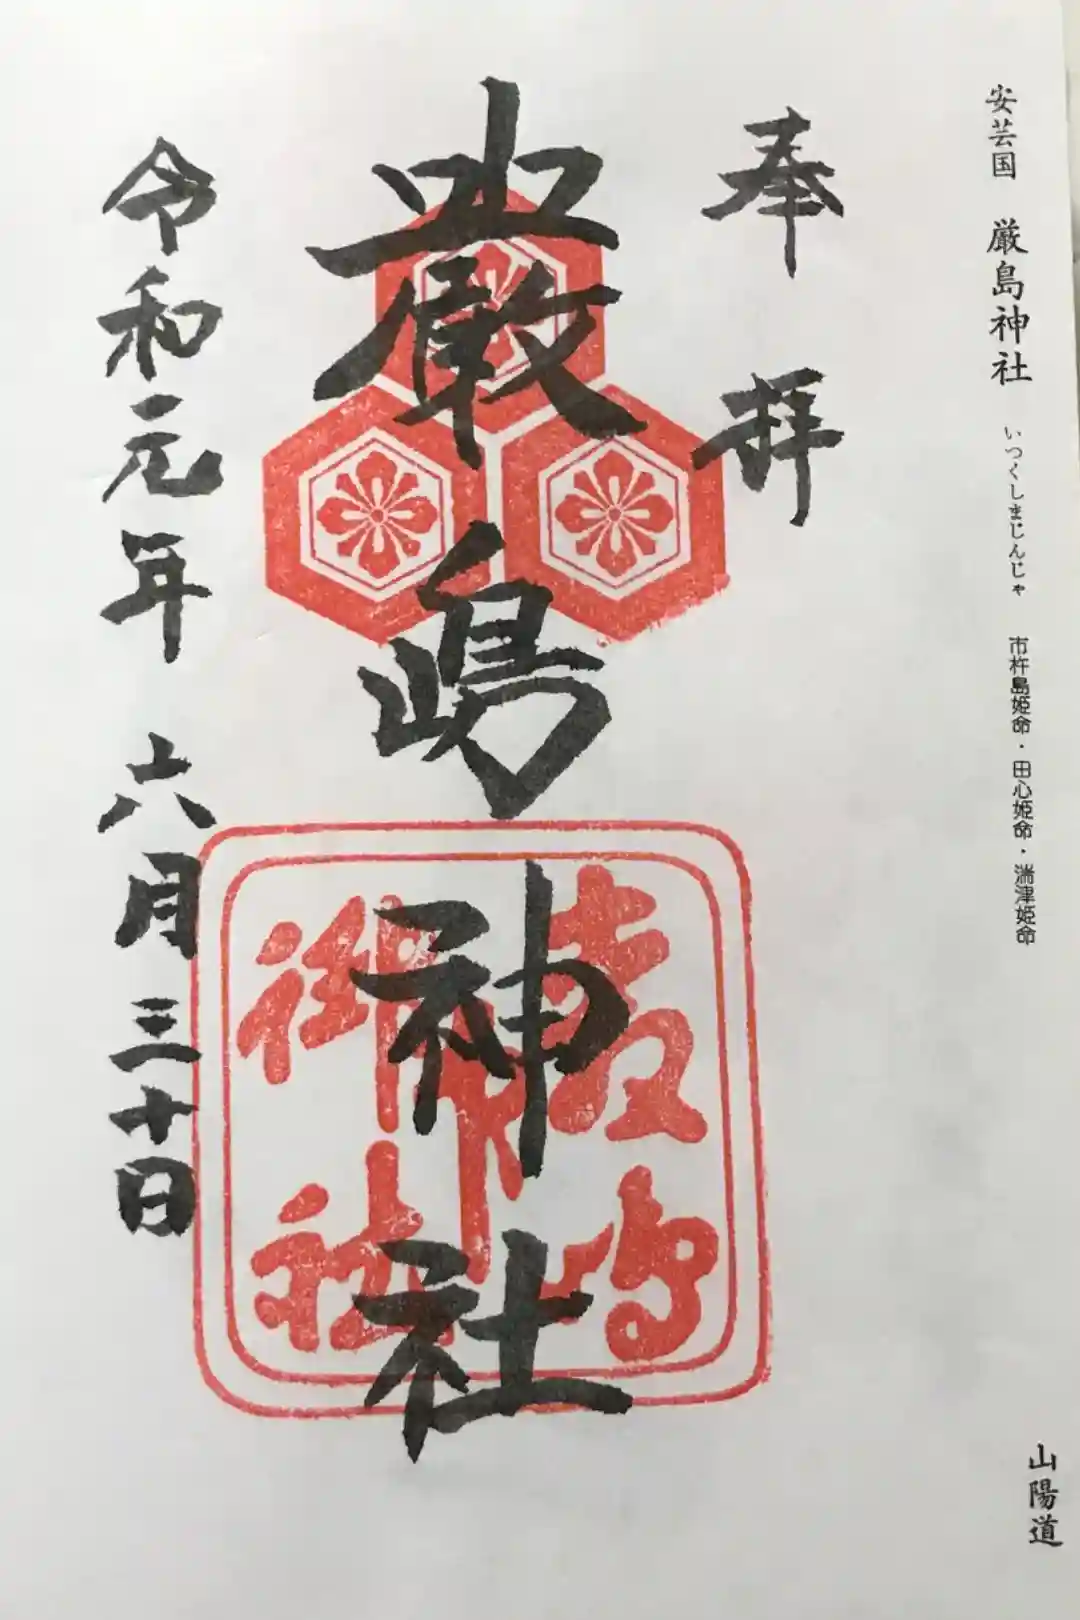 安芸国　厳島神社　いつくしまじんじゃ　市杵島姫命・田心姫命・湍津姫命
山陽道
奉拝
嚴嶋神社
令和元年六月三十日